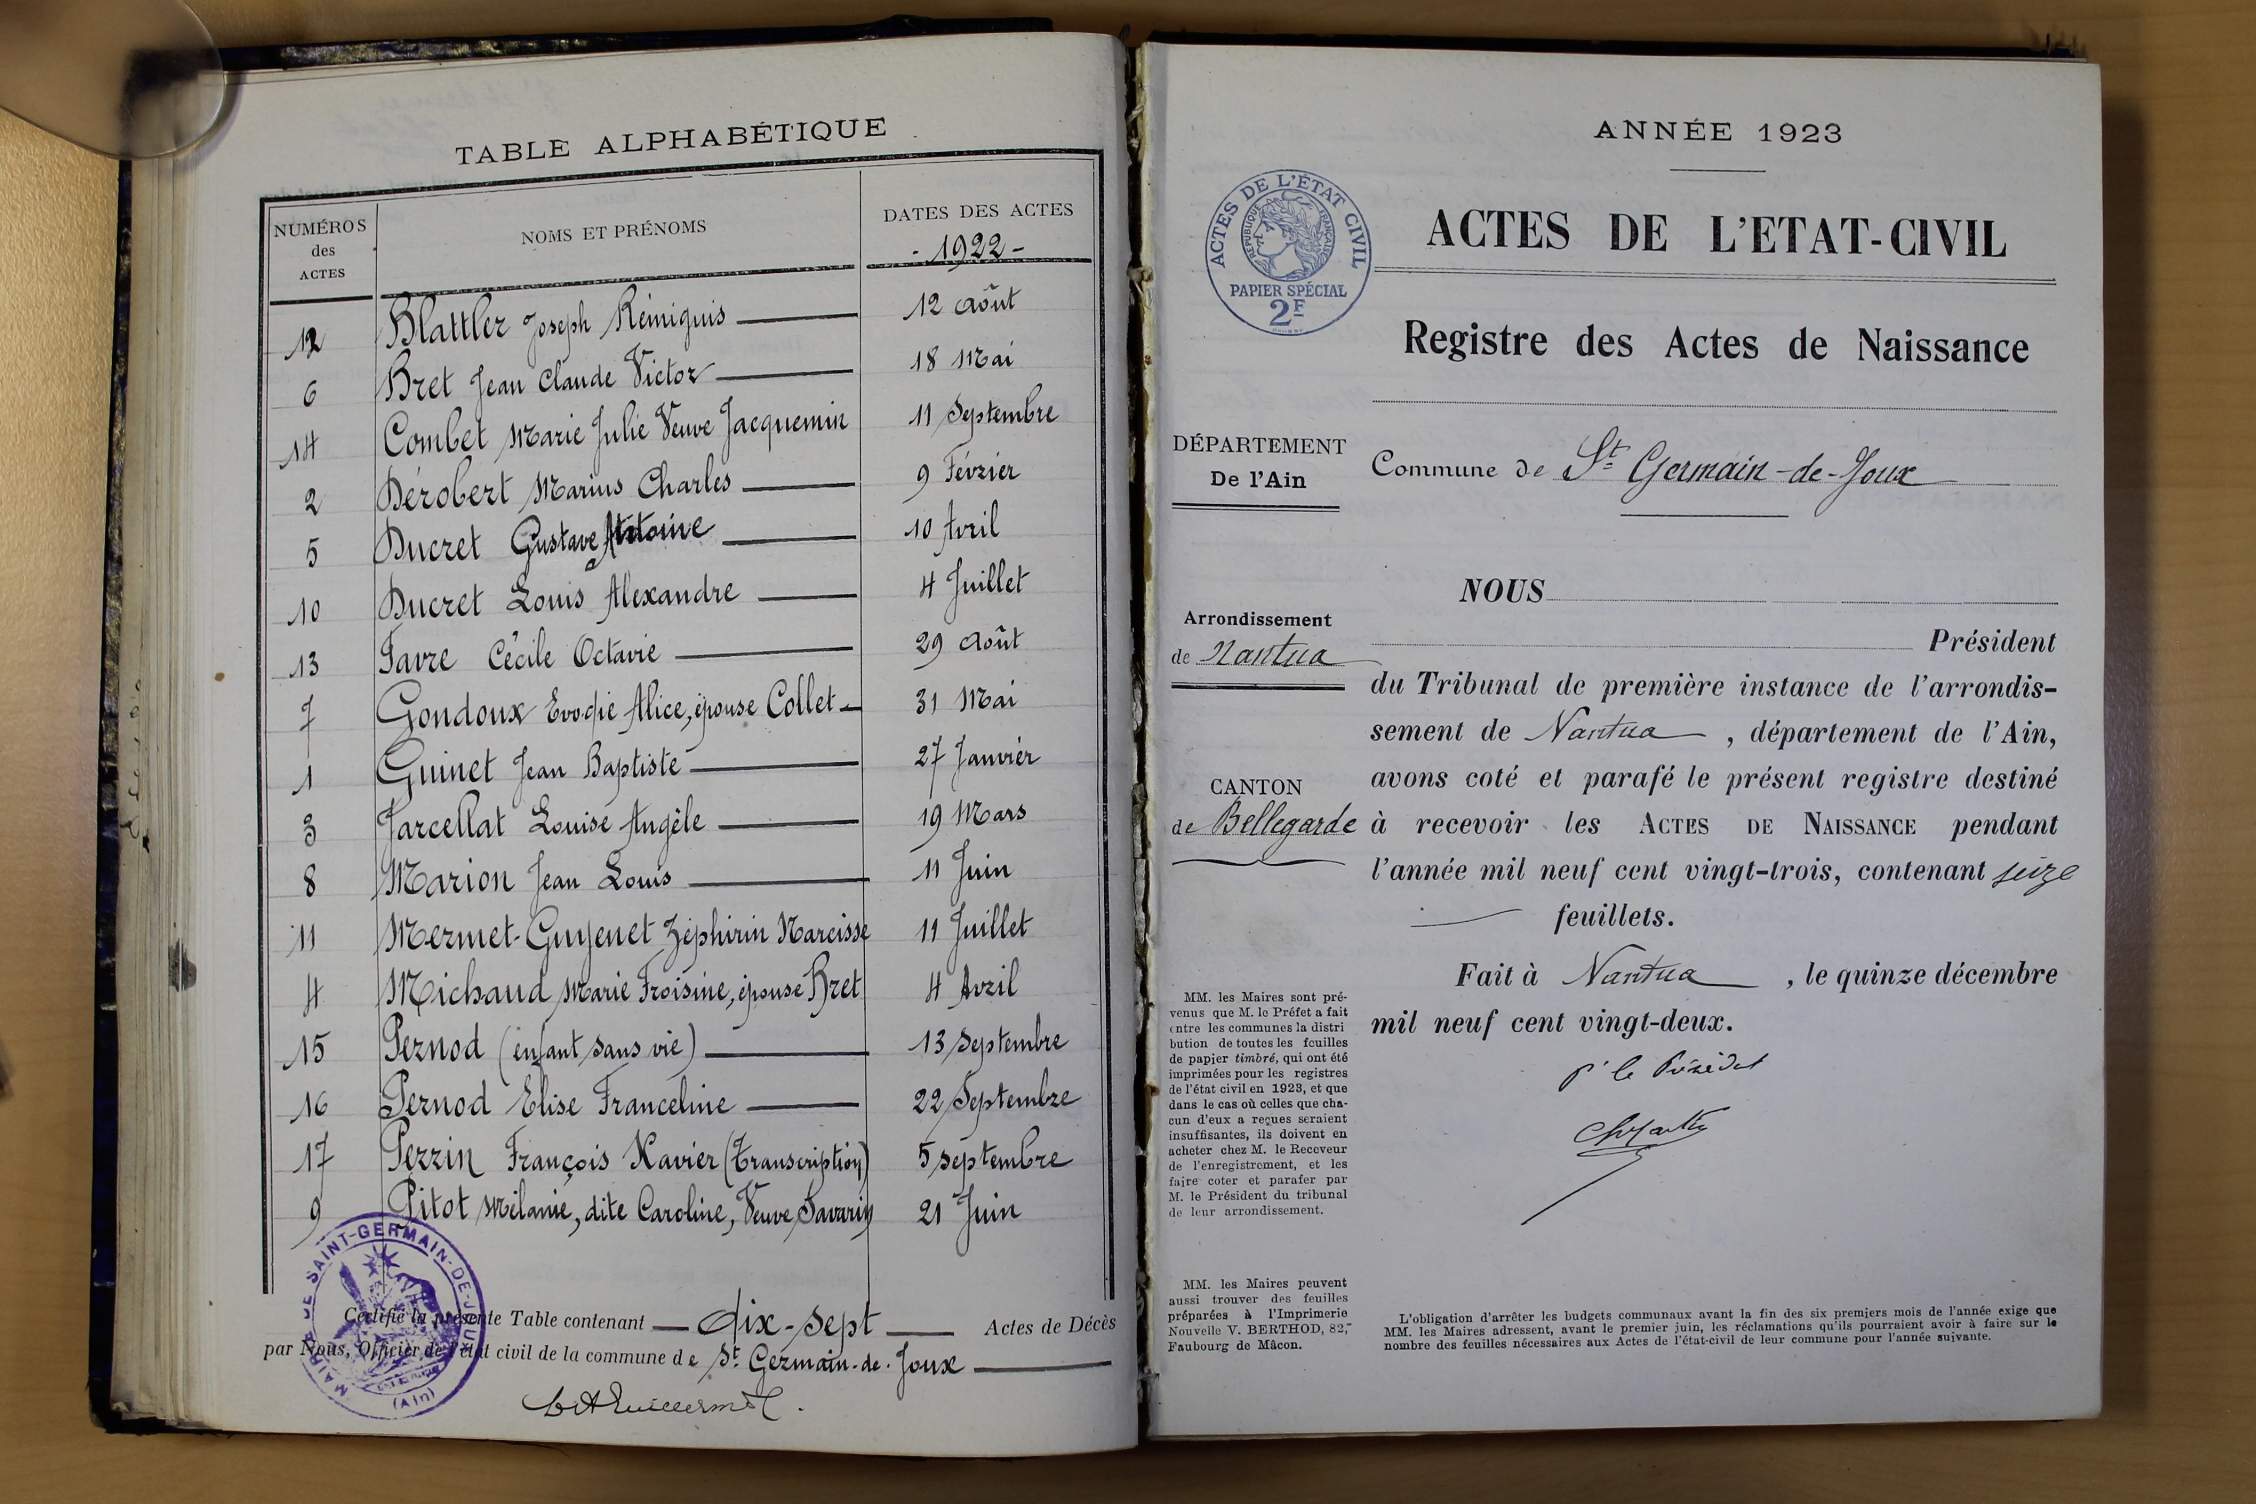 TABLE ALPHABÉTIQUE
NUMÉROS des ACTES
NOMS ET PRÉNOMS
DATES DES ACTES
- 1922 -
12 Blattler Joseph Rémiguis 12 Août
6 Bret Jean Claude Victor 18 Mai
14 Combet Marie Julie Veuve Jacquemin 11 Septembre
2 Dérobert Marius Charles 9 Février
5 Ducret Gustave Antoine 10 Avril
10 Ducret Louis Alexandre 4 Juillet
13 Favre Cécile Octavie 29 Août
7 Gondoux Evodie Alice, épouse Collet 31 Mai
1 Guinet Jean Baptiste 27 Janvier
3 Jarcellat Louise Angèle 19 Mars
8 Marion Jean Louis 11 Juin
11 Mermet-Guyenet Zéphirin Narcisse 11 Juillet
4 Michaud Marie Froisine, épouse Bret 4 Avril
15 Pernod (enfant sans vie) 13 Septembre
16 Pernod Elise Franceline 22 Septembre
17 Perrin François Xavier (Transcription) 5 septembre
9 Pitot Mélanie, dite Caroline, Veuve Savarin 21 Juin
MAIRIE DE SAINT-GERMAIN-DE-JOUX
(Ain)
Certifié la présente Table contenant — dix-sept — Actes de Décès
par Nous, Officier de l'état civil de la commune de St Germain-de-Joux
ANNÉE 1923
ACTES DE L'ÉTAT CIVIL
RÉPUBLIQUE FRANÇAISE
PAPIER SPÉCIAL
2F
ACTES DE L'ETAT-CIVIL
Registre des Actes de Naissance
DÉPARTEMENT
De l'Ain
Commune de St Germain-de-Joux
Arrondissement
de Nantua
CANTON
de Bellegarde
NOUS
Président
du Tribunal de première instance de l'arrondis-
sement de Nantua , département de l'Ain,
avons coté et parafé le présent registre destiné
à recevoir les ACTES DE NAISSANCE pendant
l'année mil neuf cent vingt-trois, contenant seize
feuillets.
Fait à Nantua , le quinze décembre
mil neuf cent vingt-deux.
MM. les Maires sont pré-
venus que M. le Préfet a fait
entre les communes la distri
bution de toutes les feuilles
de papier timbré, qui ont été
imprimées pour les registres
de l'état civil en 1923, et que
dans le cas où celles que cha-
cun d'eux a reçues seraient
insuffisantes, ils doivent en
acheter chez M. le Receveur
de l'enregistrement, et les
faire coter et parafer par
M. le Président du tribunal
de leur arrondissement.
MM. les Maires peuvent
aussi trouver des feuilles
préparées à l'Imprimerie
Nouvelle V. BERTHOD, 82,
Faubourg de Mâcon.
L'obligation d'arrêter les budgets communaux avant la fin des six premiers mois de l'année exige que
MM. les Maires adressent, avant le premier juin, les réclamations qu'ils pourraient avoir à faire sur le
nombre des feuilles nécessaires aux Actes de l'état-civil de leur commune pour l'année suivante.